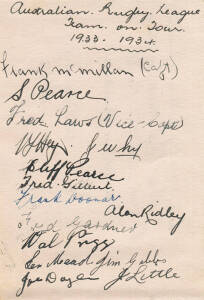 Australian Rugby League
Team on Tour
1933. 1934
Frank McMillan (Capt)
S. Pearce
Fred Laws (Vice-Capt)
Cliff Pearce
Fred Gilbert
Frank Doonar
Alan Ridley
Fred Gardner
Wal Prigg
Len Mead Jim Gibbs
J Little